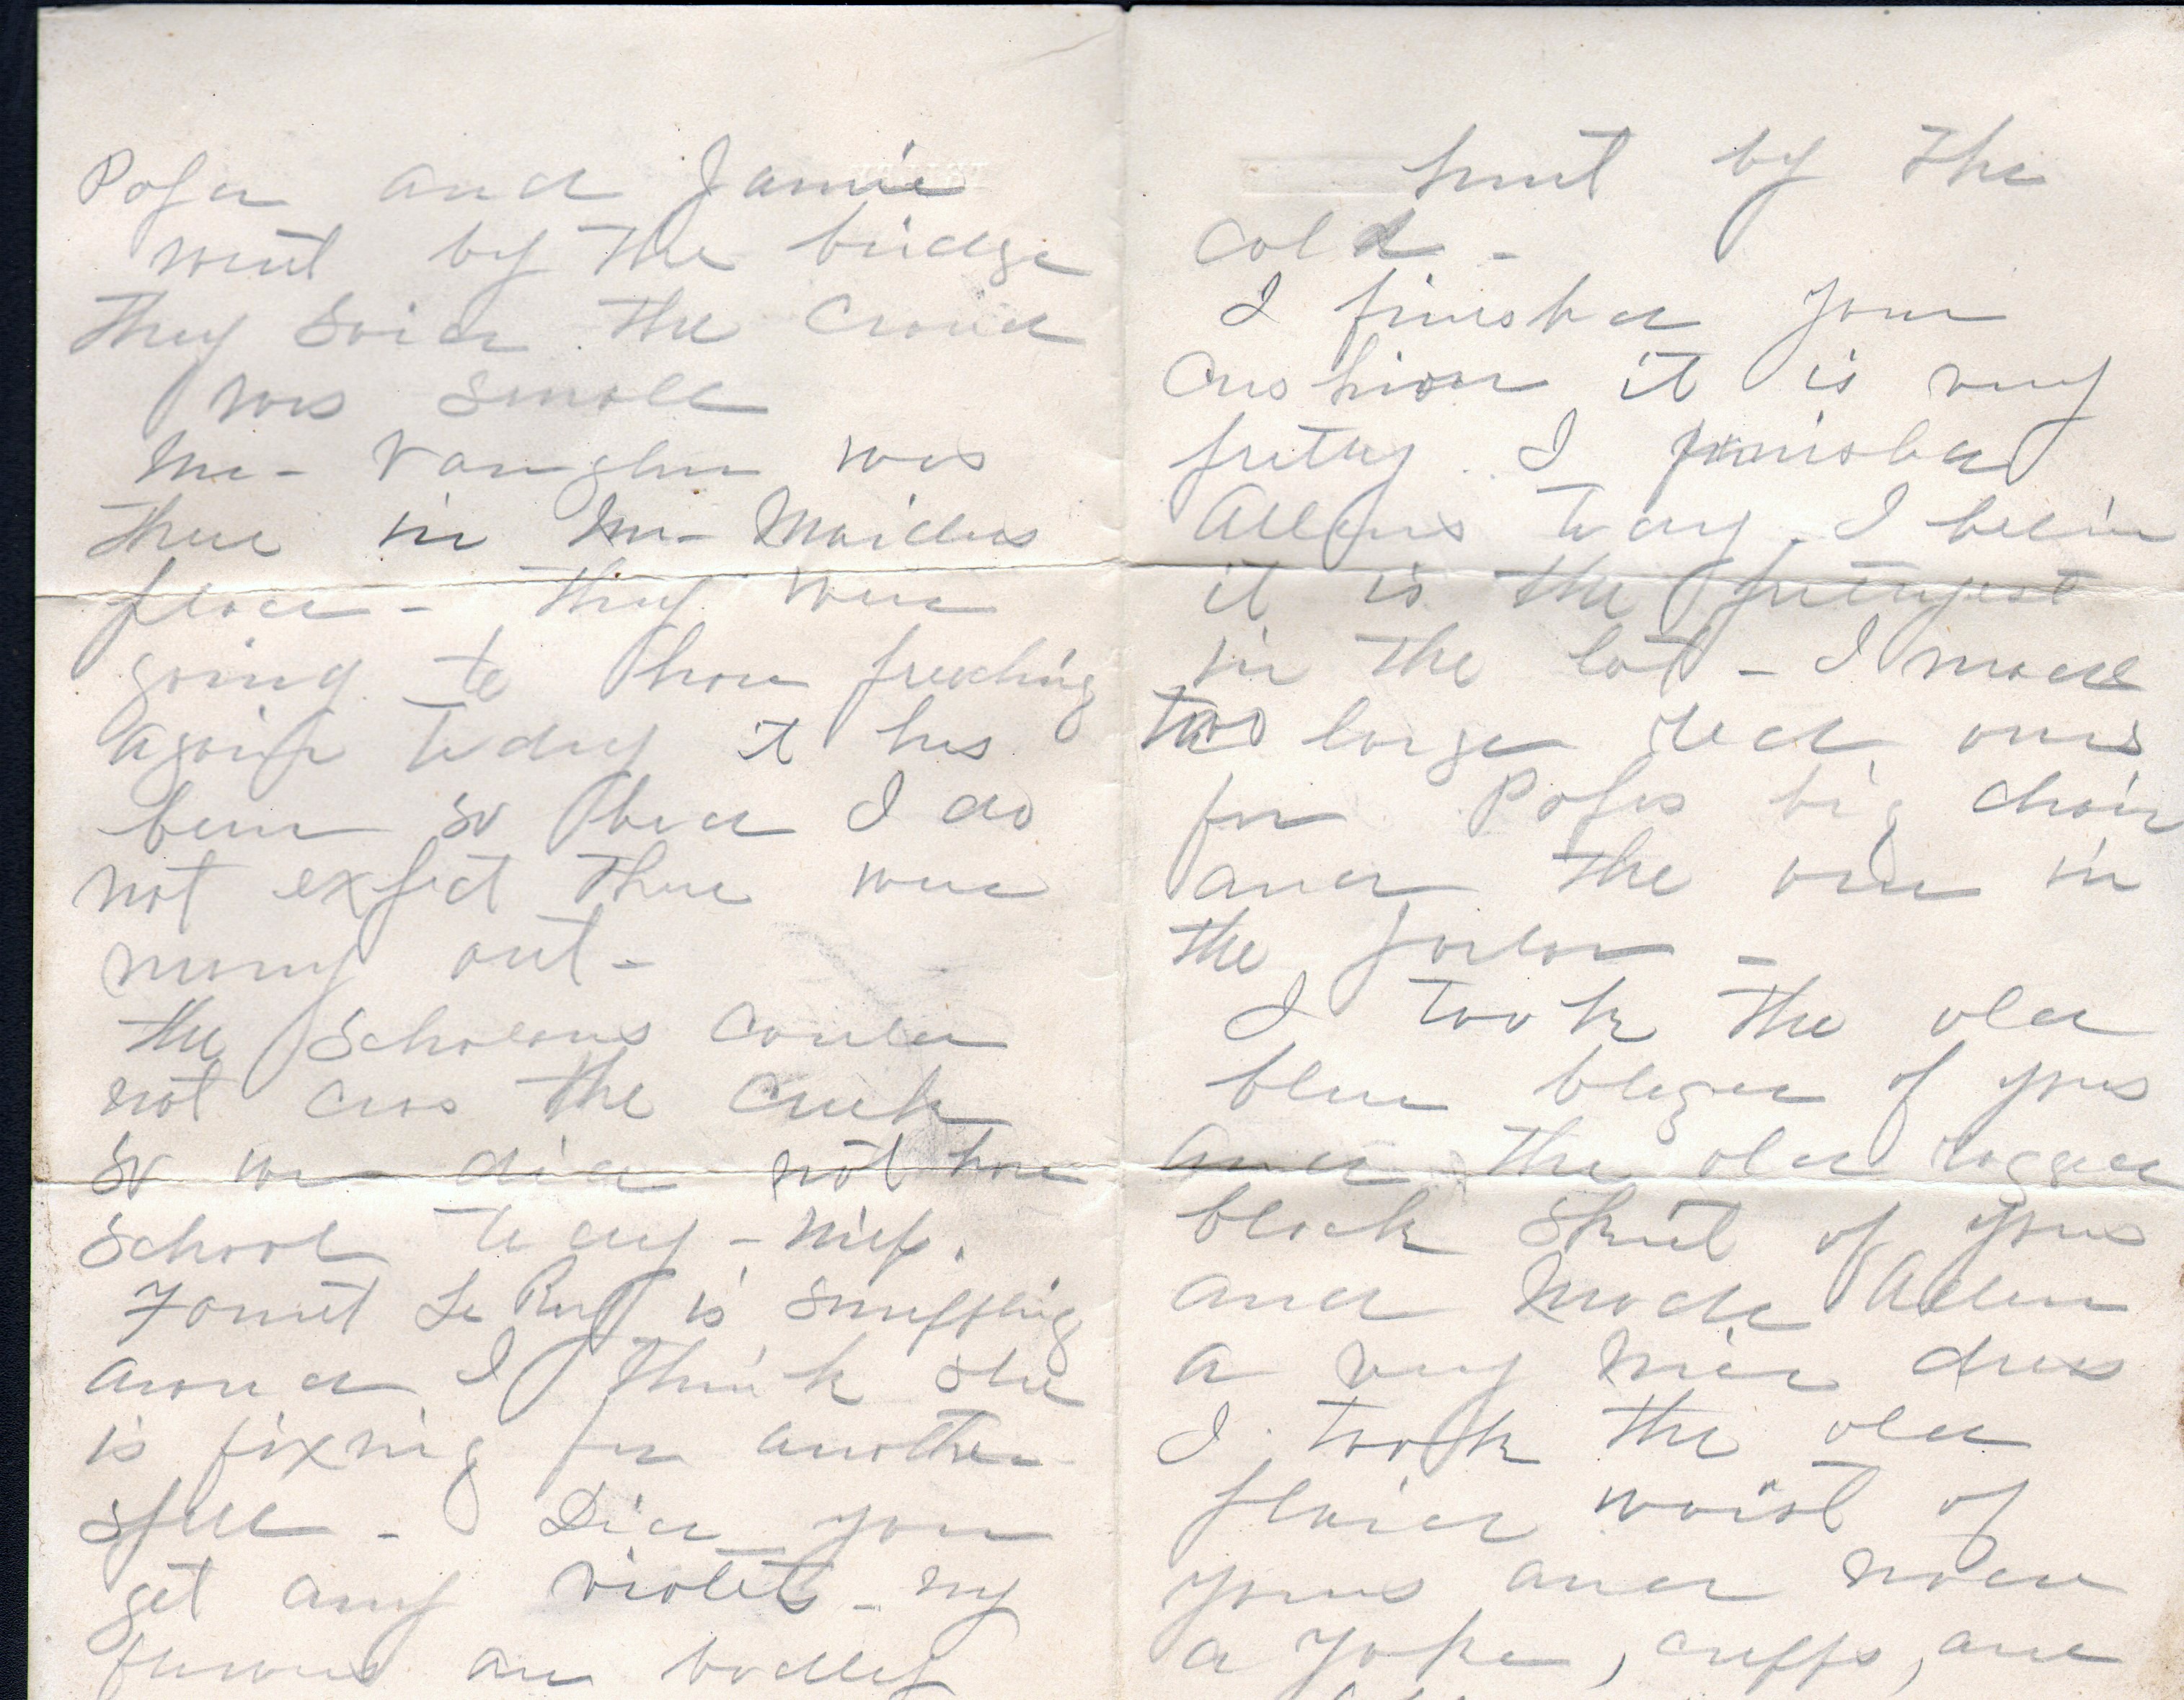 Papa and Jamie
went by the bridge
they said the crowd
was small
Mr- Vaughn was
there in Mr-
place - they were
going to have preaching
again today it has
been so bad I do
not expect there were
many out -
the scholars could
not cros the creek
so we did not have
school today -
is snuffling
around I think she
is fixing for another
spell - Did you
get any violets - my
flowers are badly
hurt by the
cold -
I finished your
cushion it is very
pretty. I finished
Allens today - I believe
it is the prettyest
in the lot - I made
two large red ones
for Papas big chair
and the one in
the parlor -
I took the old
blue blazer of yours
and the old ragged
black skirt of yours
and made Allen
a very nice dress
I took the old
plaid waist of
yours and made
a yoke, cuffs, and